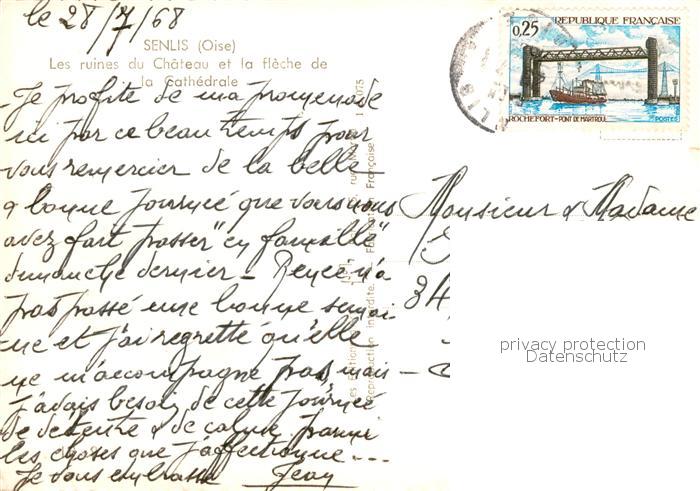 le 28/7/68
SENLIS (Oise)
Les ruines du Château et la flèche de
la Cathédrale
Je profite de ma promenade
ici par ce beau temps pour
vous remercier de la belle
& bonne journée que vous nous
avez fait passer "en famille"
dimanche dernier - Renée n'a
pas passé une bonne semai
ne et j'ai regretté qu'elle
ne m'accompagne pas mais
j'avais besoin de cette journée
de détente & de calme parmi
les choses que j'affectionne ...
Je vous embrasse Jean
075
Les Editions
Reproduction interdite. Française
0,25 REPUBLIQUE FRANÇAISE
ROCHEFORT-PONT DE MARTROU POSTES
Monsieur & Madame
34
privacy protection
Datenschutz